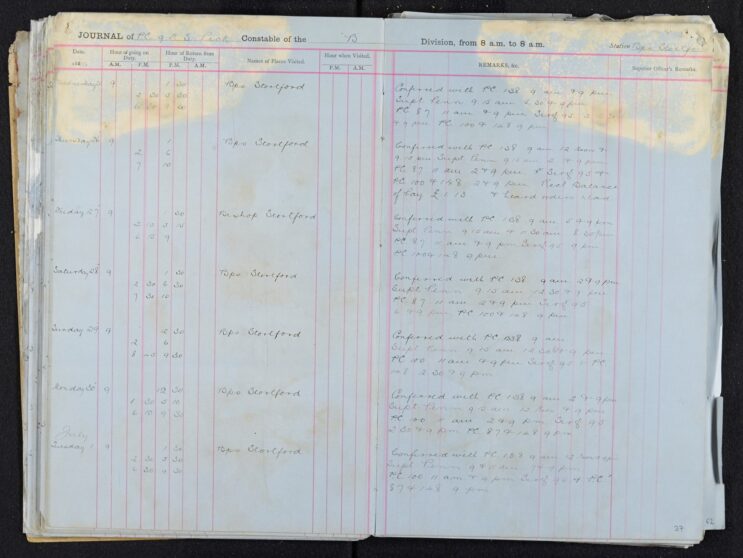 JOURNAL of PC 92 Constable of the B Division, from 8 a.m. to 8 a.m. Station Bps Stortford
Date. Hour of going on Duty. Hour of Return from Duty. Names of Places Visited. Hour when Visited. REMARKS, &c. Superior Officer's Remarks.
A.M. P.M. P.M. A.M. P.M. A.M.
Wednesday 9 1 30 Bps Stortford Conferred with PC 138 9 am 4 9 pm
2 30 5 30 Supt Penn 9 15 am 2 30 4 9 pm
PC 87 11 am 4 9 pm Serg 95
4 9 pm PC 100 4 148 9 pm
Thursday 26 9 1 Bps Stortford Conferred with PC 138 9 am 12 Noon 4
2 6 9 10 pm Supt Penn 9 15 am 2 4 9 pm
7 10 PC 87 11 am 2 4 9 pm Serg 95 4
PC 100 4 148 2 4 9 pm Recd Balance
of Pay £1. 13 4 heard orders read
Friday 27 9 1 30 Bishop Stortford Conferred with PC 138 9 am 4 9 pm
Supt Penn 9 15 am 11 30 am 8 30 pm
6 15 9 PC 87 11 am 4 9 pm Serg 95 9 pm
PC 100 4 148 9 pm
Saturday 28 9 1 30 Bps Stortford Conferred with PC 138 9 am 2 4 9 pm
2 30 6 30 Supt Penn 9 15 am 12 30 4 9 pm
7 30 10 PC 87 11 am 2 4 9 pm Serg 95
6 4 9 pm PC 100 4 148 9 pm
Sunday 29 9 12 30 Bps Stortford Conferred with PC 138 9 am
2 6 Supt Penn 9 15 am 12 30 4 9 pm
8 9 30 PC 100 11 am 4 9 pm Serg 95 4 PC
148 2 30 4 9 pm
Monday 30 9 12 30 Bps Stortford Conferred with PC 138 9 am 2 4 9 pm
1 30 5 10 Supt Penn 9 15 am 12 Noon 4 9 pm
6 10 9 30 PC 100 11 am 2 4 9 pm Serg 95
2 30 4 9 pm PC 87 4 148 9 pm
July
Tuesday 1 9 1 30 Bps Stortford Conferred with PC 138 9 am
2 30 5 30 Supt Penn 9 15 am 4 9 pm
6 30 9 30 PC 100 11 am 4 9 pm Serg 95 4 PC
87 4 148 9 pm
37